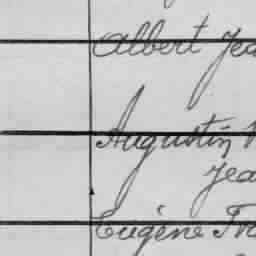 Albert Jea
Augustin
Jea
Eugène Fra